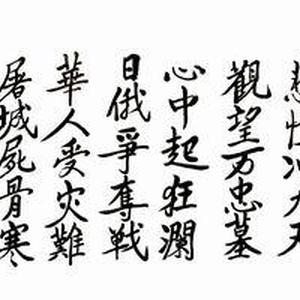 情冲九天
觀望万忠墓
心中起狂瀾
日俄爭奪戦
華人受灾難
屠城屍骨寒